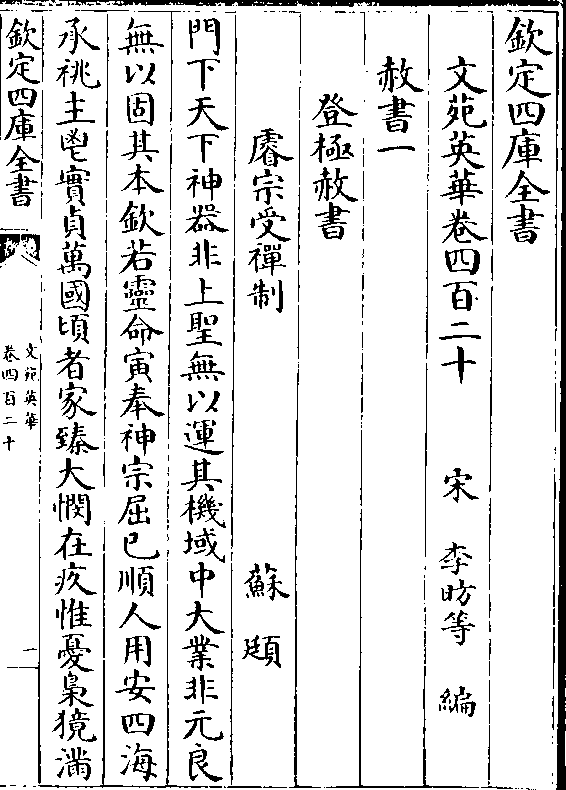 欽定四庫全書
文苑英華卷四百二十　宋　李昉等　編
赦書一
登極赦書
睿宗受禪制　蘇頲
門下天下神器非上聖無以運其機域中大業非元良
無以固其本欽若靈命寅奉神宗屈已順人用安四海
承祧主鬯實貞萬國頃者家臻大憫在疚惟憂梟獍滿
欽定四庫全書
文苑英華
卷四百二十
一